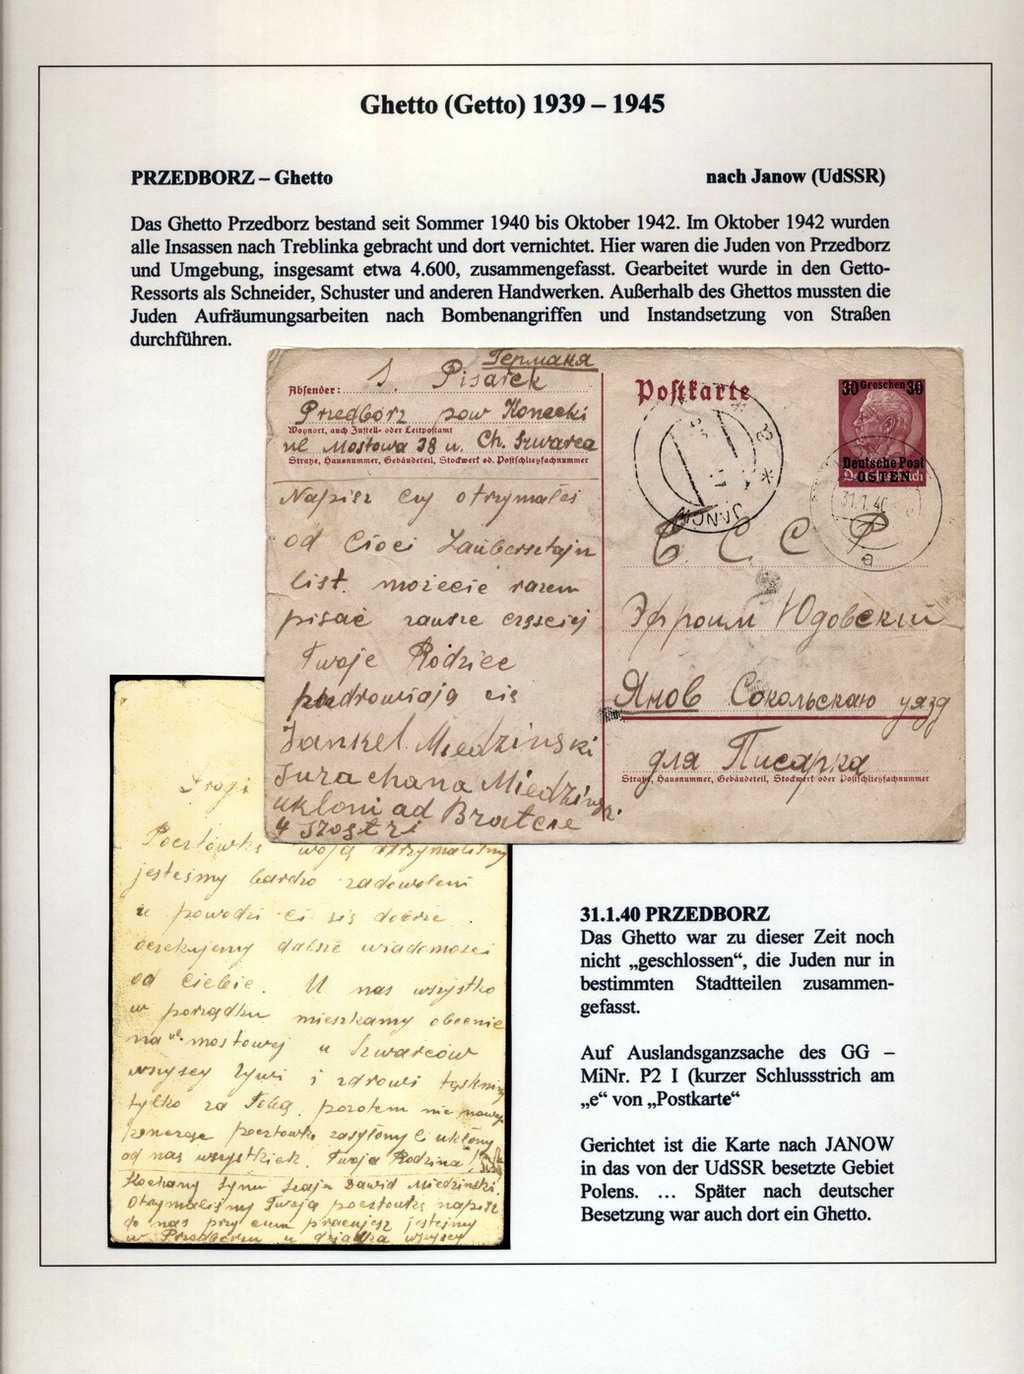 Ghetto (Getto) 1939 – 1945
PRZEDBORZ – Ghetto
nach Janow (UdSSR)
Das Ghetto Przedborz bestand seit Sommer 1940 bis Oktober 1942. Im Oktober 1942 wurden
alle Insassen nach Treblinka gebracht und dort vernichtet. Hier waren die Juden von Przedborz
und Umgebung, insgesamt etwa 4.600, zusammengefasst. Gearbeitet wurde in den Getto-
Ressorts als Schneider, Schuster und anderen Handwerken. Außerhalb des Ghettos mussten die
Juden Aufräumungsarbeiten nach Bombenangriffen und Instandsetzung von Straßen
durchführen.
Германия
Absender: J. Pisarek
Przedbórz pow Konecki
Wohnort, auch Zustell- oder Leitpostamt
ul Mostowa 38 u. Ch. Szwarca
Straße, Hausnummer, Gebäudeteil, Stockwerk od. Postschließfachnummer
Napisz czy otrzymałeś
od Cioci
list. możecie razem
pisać zawsze częściej
Twoje Rodzice
pozdrowiają cię
Jankel Miedzinski
chana Miedzins
ukłoni ad Bratere
4 szostri
Postkarte
30 Groschen 30
Deutsche Post
OSTEN
JANOW
31.1.40
a
С. С. С Р
Эфроим Юдовский
Янов Сокольскаю уязд
для Писарка
Straße, Hausnummer, Gebäudeteil, Stockwerk oder Postschließfachnummer
Drogi
Pocztówkę twoją otrzymaliśmy
jesteśmy bardzo zadowoleni
że powodzi ci się dobrze.
oczekujemy dalsze wiadomości
od Ciebie. U nas wszystko
w porządku mieszkamy obecnie
na ul mostowej u Szwarców
wszyscy żywi i zdrowi tęsknimy
tylko za Tobą. pozatem nic nowego
pocztówkę zasyłamy ci ukłony
od nas wszystkiech. Twoja Rodzina!
Kochany Synu Szaja Dawid Miedzinski.
Otrzymaliśmy Twoją pocztówkę napisz
do nas przy czem pracujesz jesteśmy
w Przedborzu u dziadka wszyscy
31.1.40 PRZEDBORZ
Das Ghetto war zu dieser Zeit noch
nicht „geschlossen“, die Juden nur in
bestimmten Stadtteilen zusammen-
gefasst.
Auf Auslandsganzsache des GG –
MiNr. P2 I (kurzer Schlussstrich am
„e“ von „Postkarte“
Gerichtet ist die Karte nach JANOW
in das von der UdSSR besetzte Gebiet
Polens. … Später nach deutscher
Besetzung war auch dort ein Ghetto.